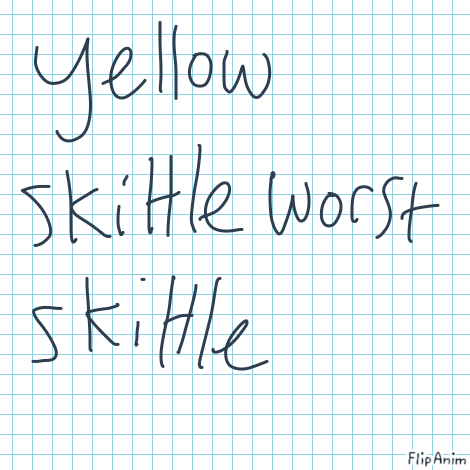 yellow
skittle worst
skittle
FlipAnim